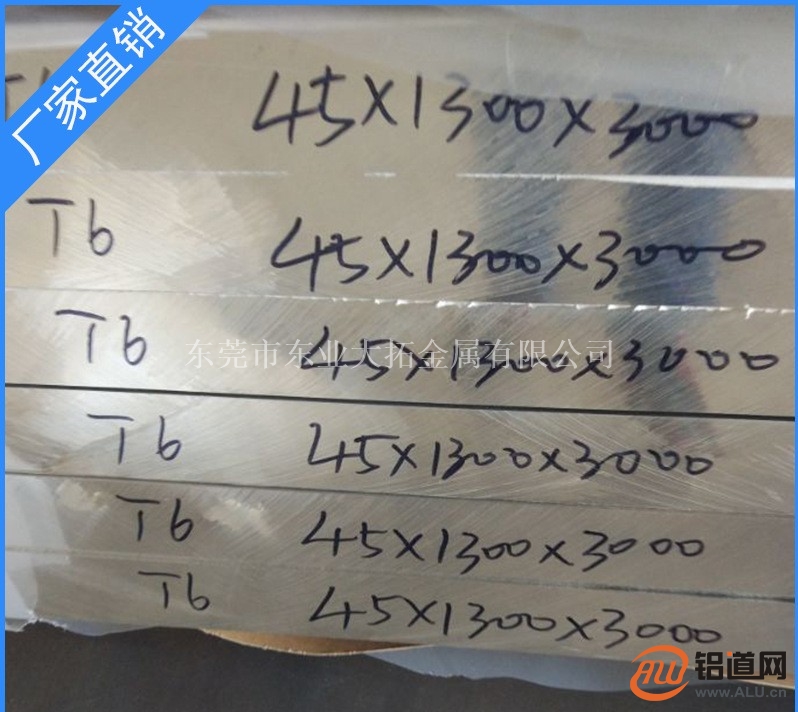 厂家直销
45X1300X3000
T6 45X1300X3000
T6 45X1300X3000
东莞市东业大拓金属有限公司
T6 45X1300X3000
T6 45X1300X3000
T6 45X1300X3000
ALU 铝道网
www.ALU.cn